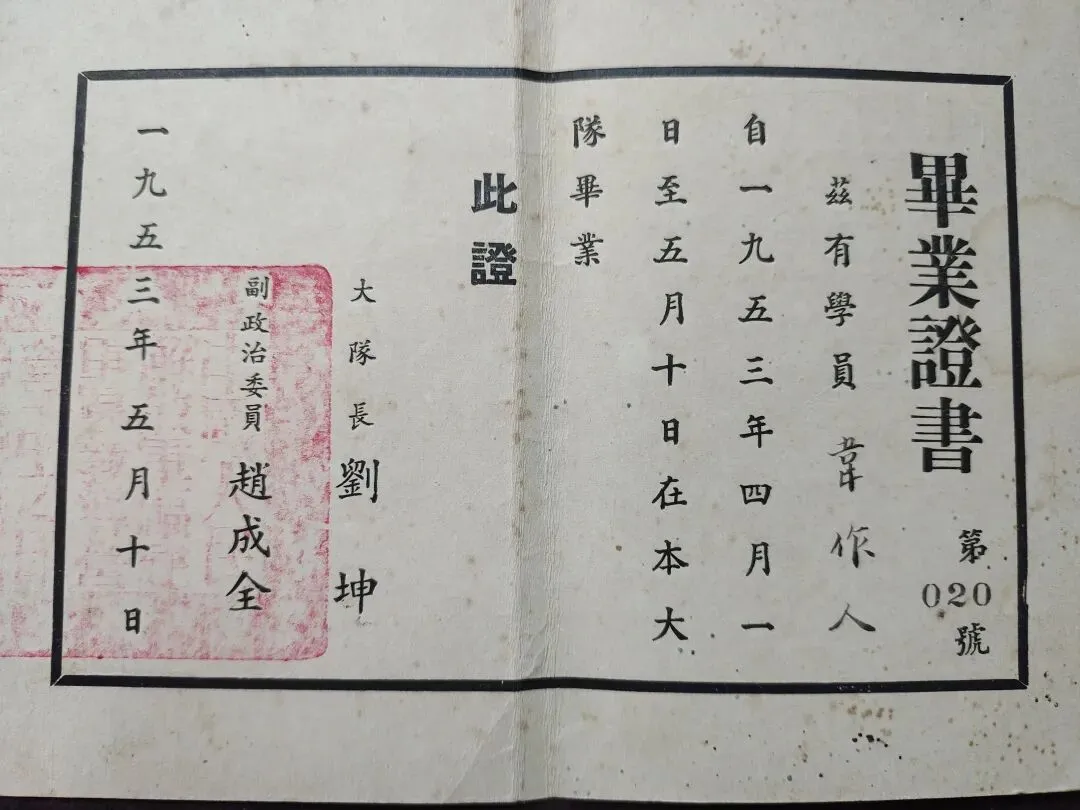 畢業證書
第
020
號
茲有學員 韋作人
自一九五三年四月一
日至五月十日在本大
隊畢業
此證
大隊長 劉坤
副政治委員 趙成全
一九五三年五月十日